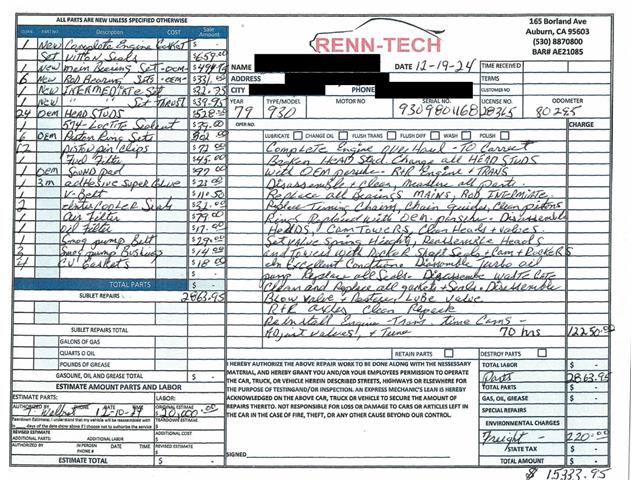 ALL PARTS ARE NEW UNLESS SPECIFIED OTHERWISE
QUAN. PART NO. Description Sale Amount
1 New Complete Engine Gasket $ -
Set Vitton Seals $650.00
1 New Main Bearing Set -OEM-
6 New Rod Bearing Sets -OEM-
1 New INTERMEDIATE Set
1 New " " Set THRUST $39.95
24 OEM HEAD STUDS $528.00
1 574-Loctite Sealant
6 OEM Piston Ring Sets
12 piston pin clips
1 Fuel Filter $45.00
1 OEM Sound pad
1 3M adhesive Super Glue
1 V-Belt $11.50
2 Intercooler Seals
1 air Filter $79.00
1 Oil Filter $17.
1 Smog pump Belt $29.00
2 Smog pump Bushings $14.00
4 CV Gaskets $18.00
TOTAL PARTS
SUBLET REPAIRS 2863.95
SUBLET REPAIRS TOTAL
GALLONS OF GAS
QUARTS O OIL
POUNDS OF GREASE
GASOLINE, OIL AND GREASE TOTAL
ESTIMATE AMOUNT PARTS AND LABOR
ESTIMATE PARTS: LABOR
AUTHORIZED BY PHONE DATE 12-10-24 ORIGINAL ESTIMATE $20,000.00
TEARDOWN ESTIMATE
REVISED ESTIMATE
ADDITIONAL PARTS: ADDITIONAL LABOR ADDITIONAL COST
AUTHORIZED BY IN PERSON PHONE # DATE TIME REVISED ESTIMATE
ESTIMATE TOTAL $
RENN-TECH
165 Borland Ave
Auburn, CA 95603
(530) 8870800
BAR# AE21085
NAME DATE 12-19-24 TIME RECEIVED
ADDRESS TERMS
CITY PHONE ORDER
YEAR TYPE/MODEL MOTOR NO SERIAL NO. LICENSE NO ODOMETER
79 930 9309801168 80295
CHARGE
LUBRICATE CHANGE OIL FLUSH TRANS FLUSH DIFF WASH POLISH
Complete Engine over Haul - TO Correct
Broken HEAD Stud. Change all HEAD STUDS
with OEM porsche - R+R Engine + TRANS
Disassemble + Clean, Measure all Parts.
Replace all Bearings MAINS, ROD INTERMIATE.
Replace Timing Chains, Chain Guides, Clean pistons
Rings Replaced with OEM-porsche- Disassemble
HEADS, Cam Towers, Clean Heads + valves.
Set valve Spring Heights, Reassemble Heads
and Towers with Rocker Shaft Seals + Cam + Rockers
in Excellent Condition. Disassemble Turbo oil
pump Replace all Seals. Disassemble waste Gate
Clean and Replace all gaskets + Seals. Disassemble
Blow valve + Restore, Lube valve
R+R axles Clean Repack
Re install Engine - Trans - time Cams -
Adjust valves, + Tune 70 hrs 12250.00
RETAIN PARTS DESTROY PARTS
I HEREBY AUTHORIZE THE ABOVE REPAIR WORK TO BE DONE ALONG WITH THE NECESSARY
MATERIAL, AND HEREBY GRANT YOU AND/OR YOUR EMPLOYEES PERMISSION TO OPERATE
THE CAR, TRUCK, OR VEHICLE HEREIN DESCRIBED STREETS, HIGHWAYS OR ELSEWHERE FOR
THE PURPOSE OF TESTING/AND/OR INSPECTION. AN EXPRESS MECHANIC'S LEAN IS HEREBY
ACKNOWLEDGED ON THE ABOVE CAR, TRUCK OR VEHICLE TO SECURE THE AMOUNT OF
REPAIRS THERETO. NOT RESPONSIBLE FOR LOSS OR DAMAGE TO CARS OR ARTICLES LEFT IN
THE CAR IN CASE OF FIRE, THEFT, OR ANY OTHER CAUSE BEYOND OUR CONTROL.
SIGNED
TOTAL LABOR
Parts 2863.95
TOTAL PARTS
GAS, OIL, GREASE
SPECIAL REPAIRS
ENVIRONMENTAL CHARGES
Freight - 220.00
STATE TAX -
TOTAL AMOUNT
$ 15333.95